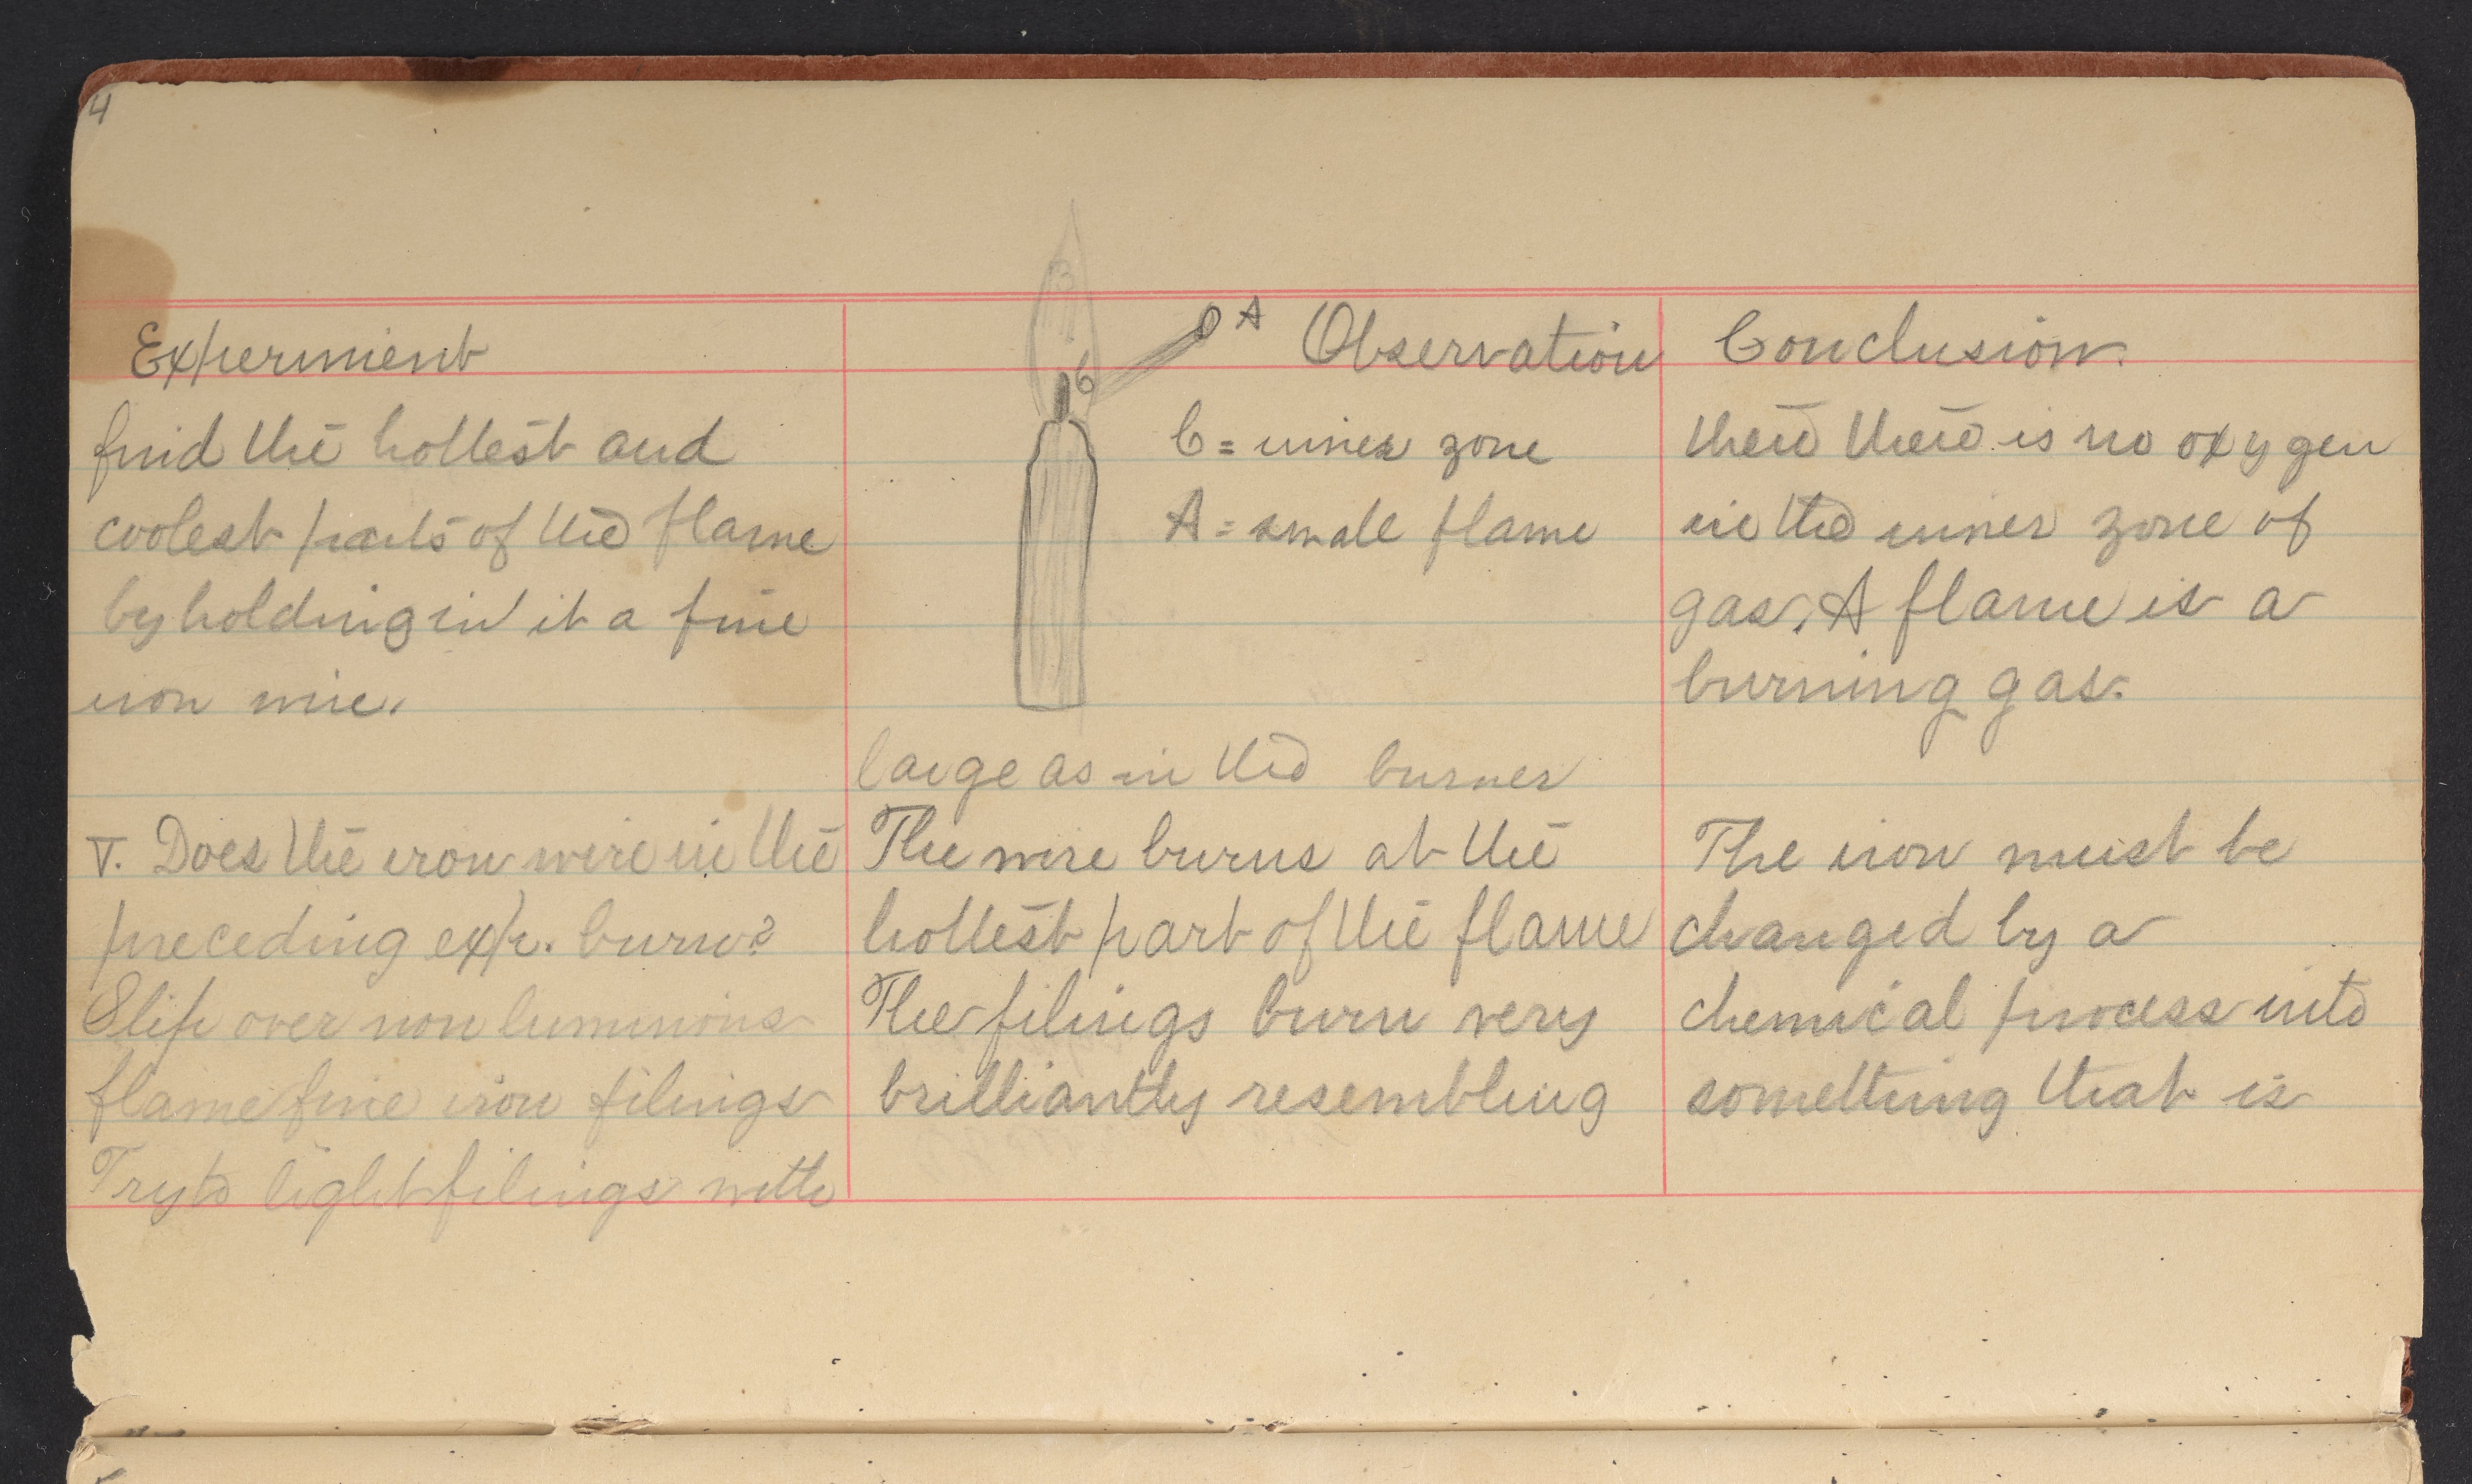 4
Experiment
find the hottest and
coolest parts of the flame
by holding in it a fine
iron wire.
V. Does the iron wire in the
preceding exp. burn?
Slip over non luminous
flame fine iron filings
Try to light filings with
B
A
C
Observation
C = inner zone
A = small flame
large as in the burner
The wire burns at the
hottest part of the flame
The filings burn very
brilliantly resembling
Conclusion.
there there is no oxygen
in the inner zone of
gas, A flame is a
burning gas.
The iron must be
changed by a
chemical process into
something that is